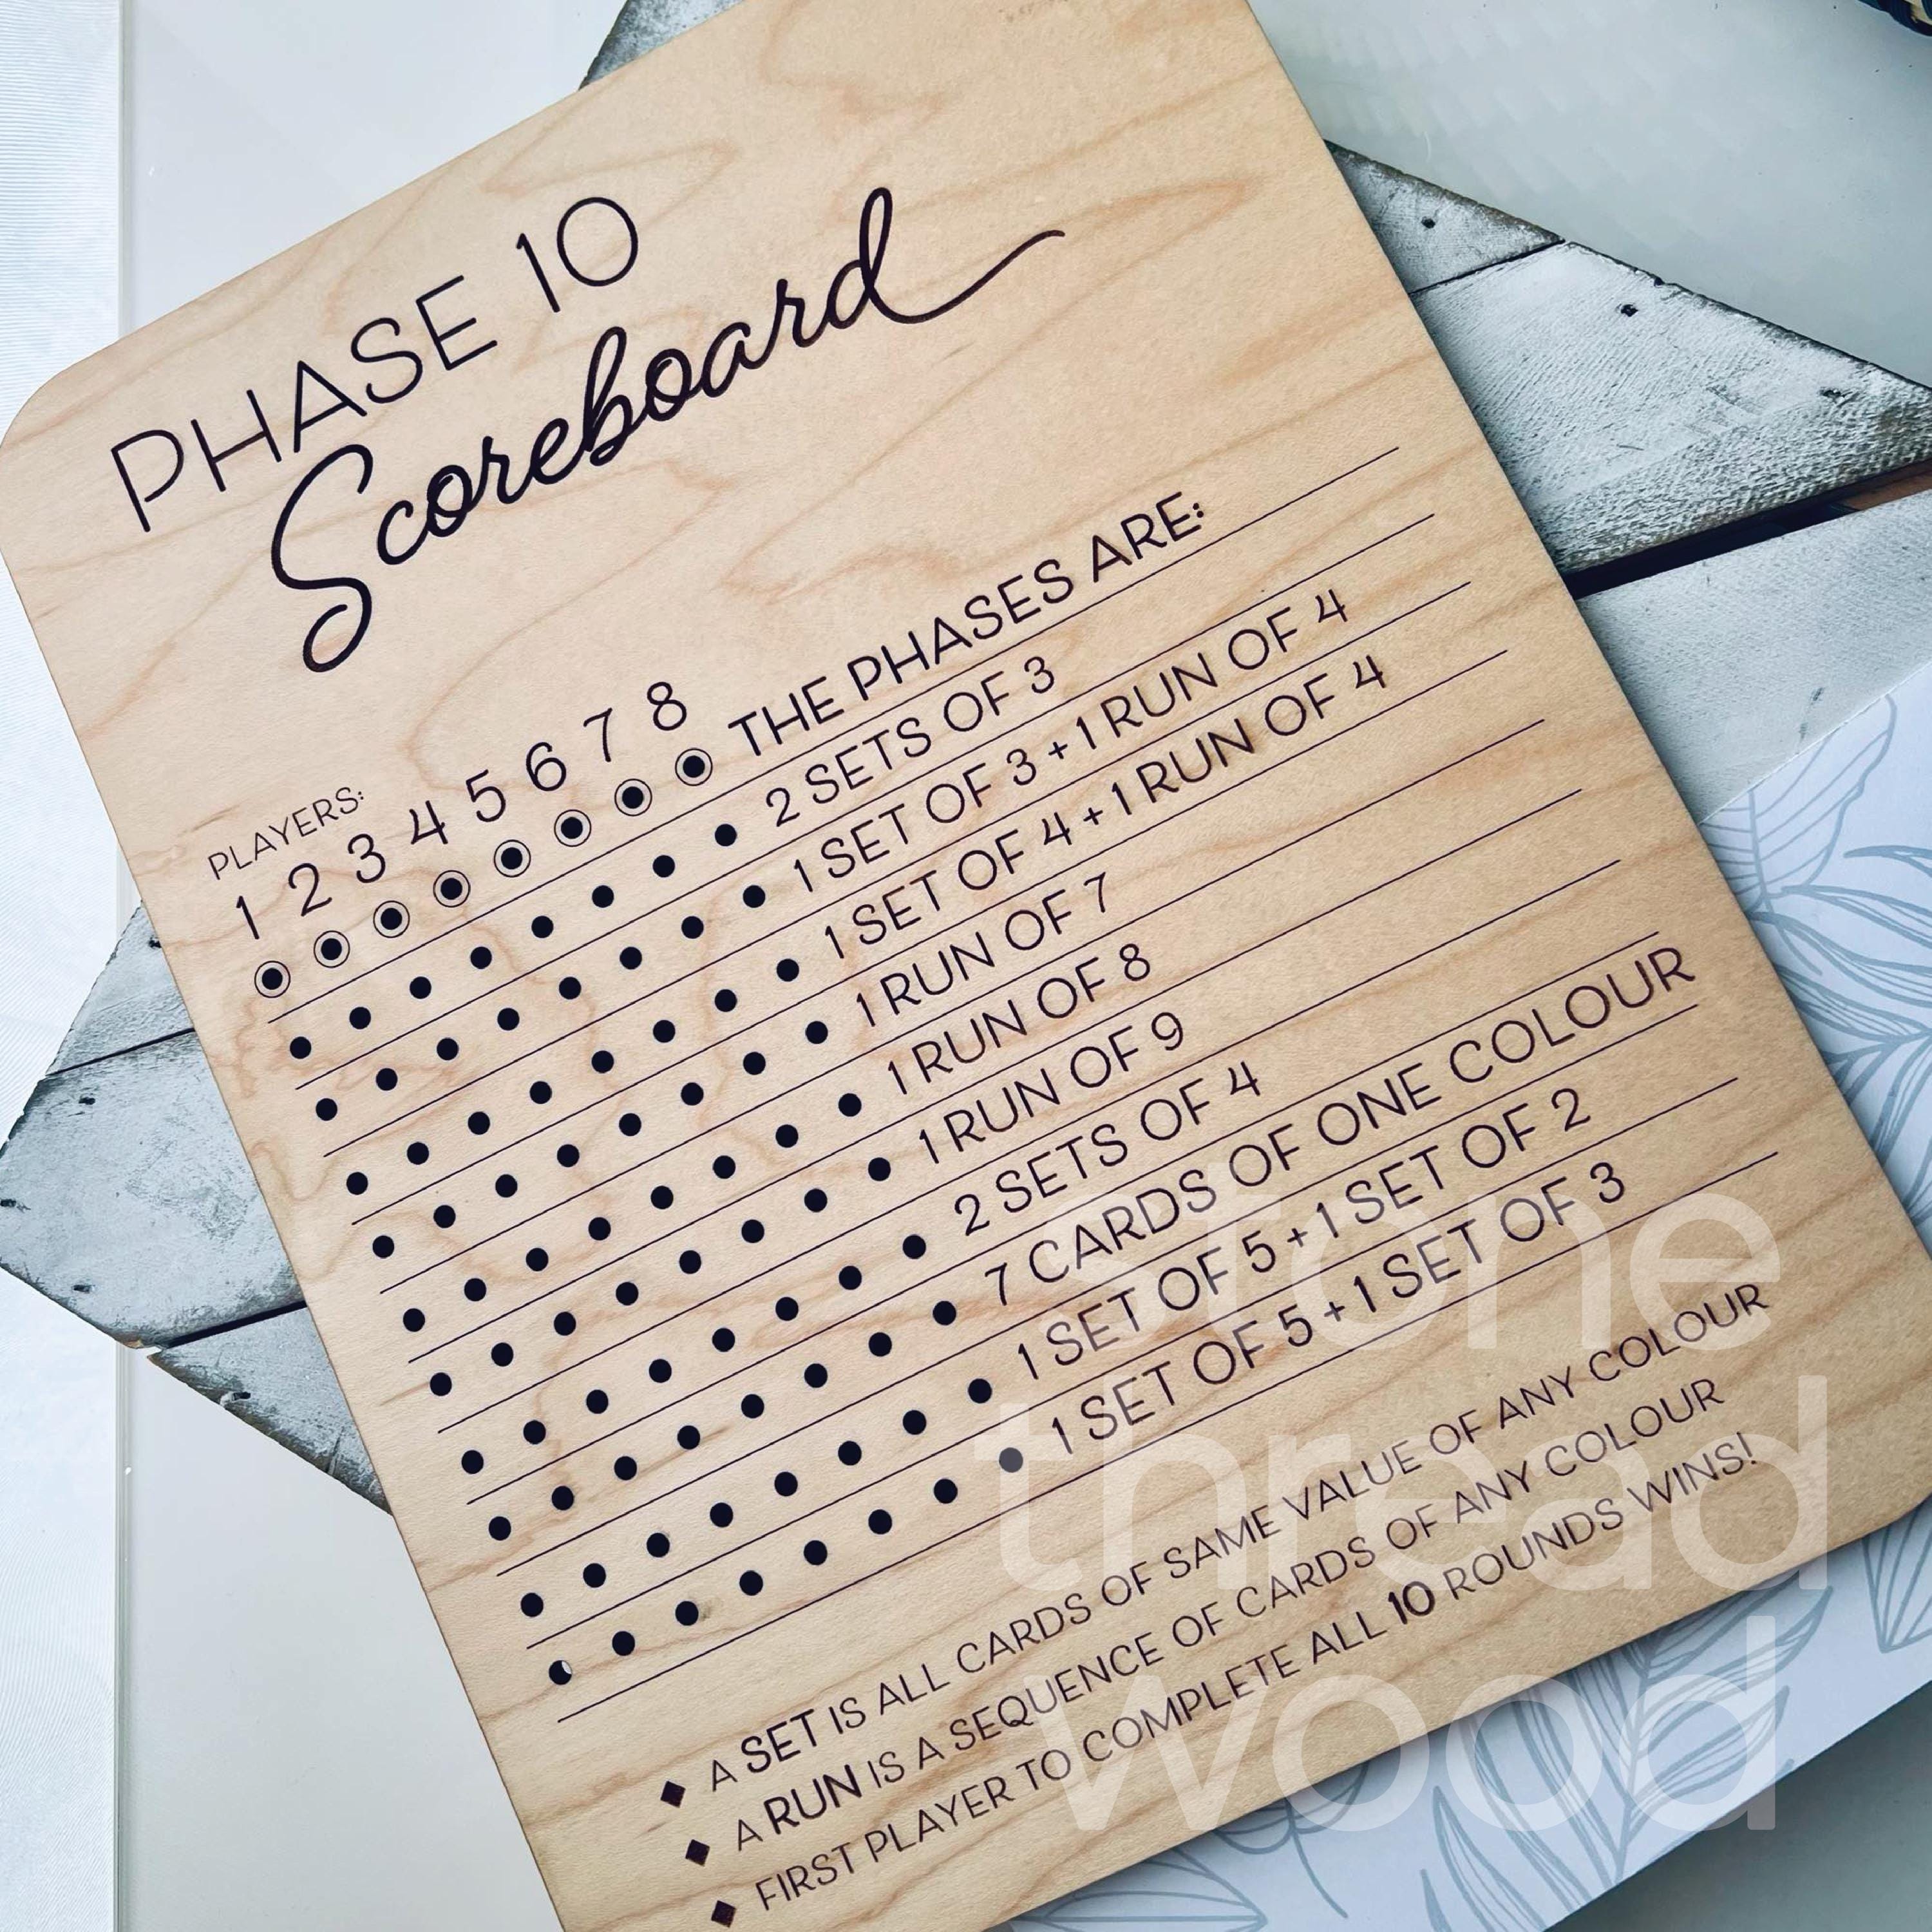 PHASE 10
Scoreboard
PLAYERS:
1 2 3 4 5 6 7 8
THE PHASES ARE:
2 SETS OF 3
1 SET OF 3 + 1 RUN OF 4
1 SET OF 4 + 1 RUN OF 4
1 RUN OF 7
1 RUN OF 8
1 RUN OF 9
2 SETS OF 4
7 CARDS OF ONE COLOUR
1 SET OF 5 + 1 SET OF 2
1 SET OF 5 + 1 SET OF 3
◆ A SET IS ALL CARDS OF SAME VALUE OF ANY COLOUR
◆ A RUN IS A SEQUENCE OF CARDS OF ANY COLOUR
◆ FIRST PLAYER TO COMPLETE ALL 10 ROUNDS WINS!
stone
thread
wood